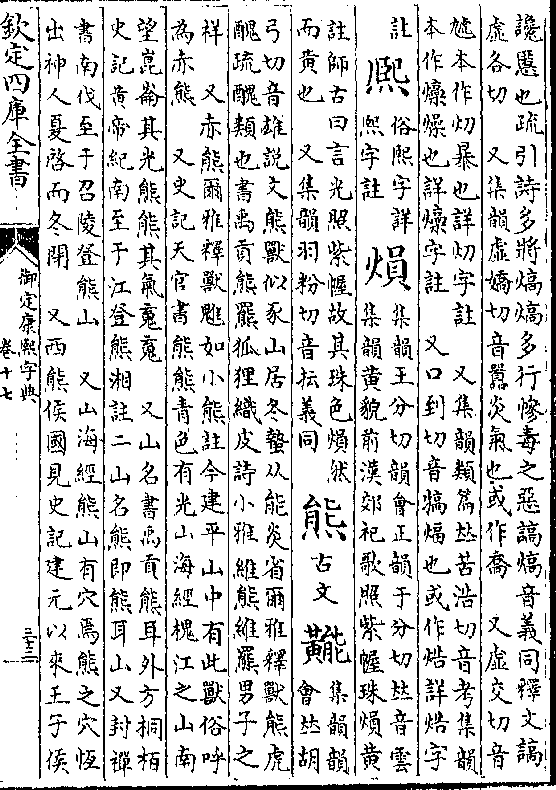 讒慝也疏引詩多將熇熇多行慘毒之惡謞熇音義同釋文謞
虛各切　又集韻虛嬌切音囂炎氣也或作喬　又虛交切音
虓本作灱暴也詳灱字註　又集韻類篇𠀤苦浩切音考集韻
本作㷶燥也詳㷶字註　又口到切音犒煏也或作焅詳焅字
註　熈　俗熙字詳熙字註　熉　集韻王分切韻會正韻于分切𠀤音雲
集韻黃貌前漢郊祀歌照紫幄珠熉黃
註師古曰言光照紫幄故其珠色熉然
而黃也　又集韻羽粉切音抎義同　熊　古文　䵎　集韻韻會𠀤胡
弓切音雄說文熊獸似豕山居冬蟄从能炎省爾雅釋獸熊虎
醜疏醜類也書禹貢熊羆狐狸織皮詩小雅維熊維羆男子之
祥　又赤熊爾雅釋獸魋如小熊註今建平山中有此獸俗呼
為赤熊　又史記天官書熊熊青色有光山海經槐江之山南
望崑崙其光熊熊其氣䰟䰟　又山名書禹貢熊耳外方桐柏
史記黃帝紀南至于江登熊湘註二山名熊即熊耳山又封禪
書南伐至于召陵登熊山　又山海經熊山有穴焉熊之穴恆
出神人夏啟而冬閉　又西熊侯國見史記建元以來王子侯
欽定四庫全書
御定康熙字典
卷十七
三十三